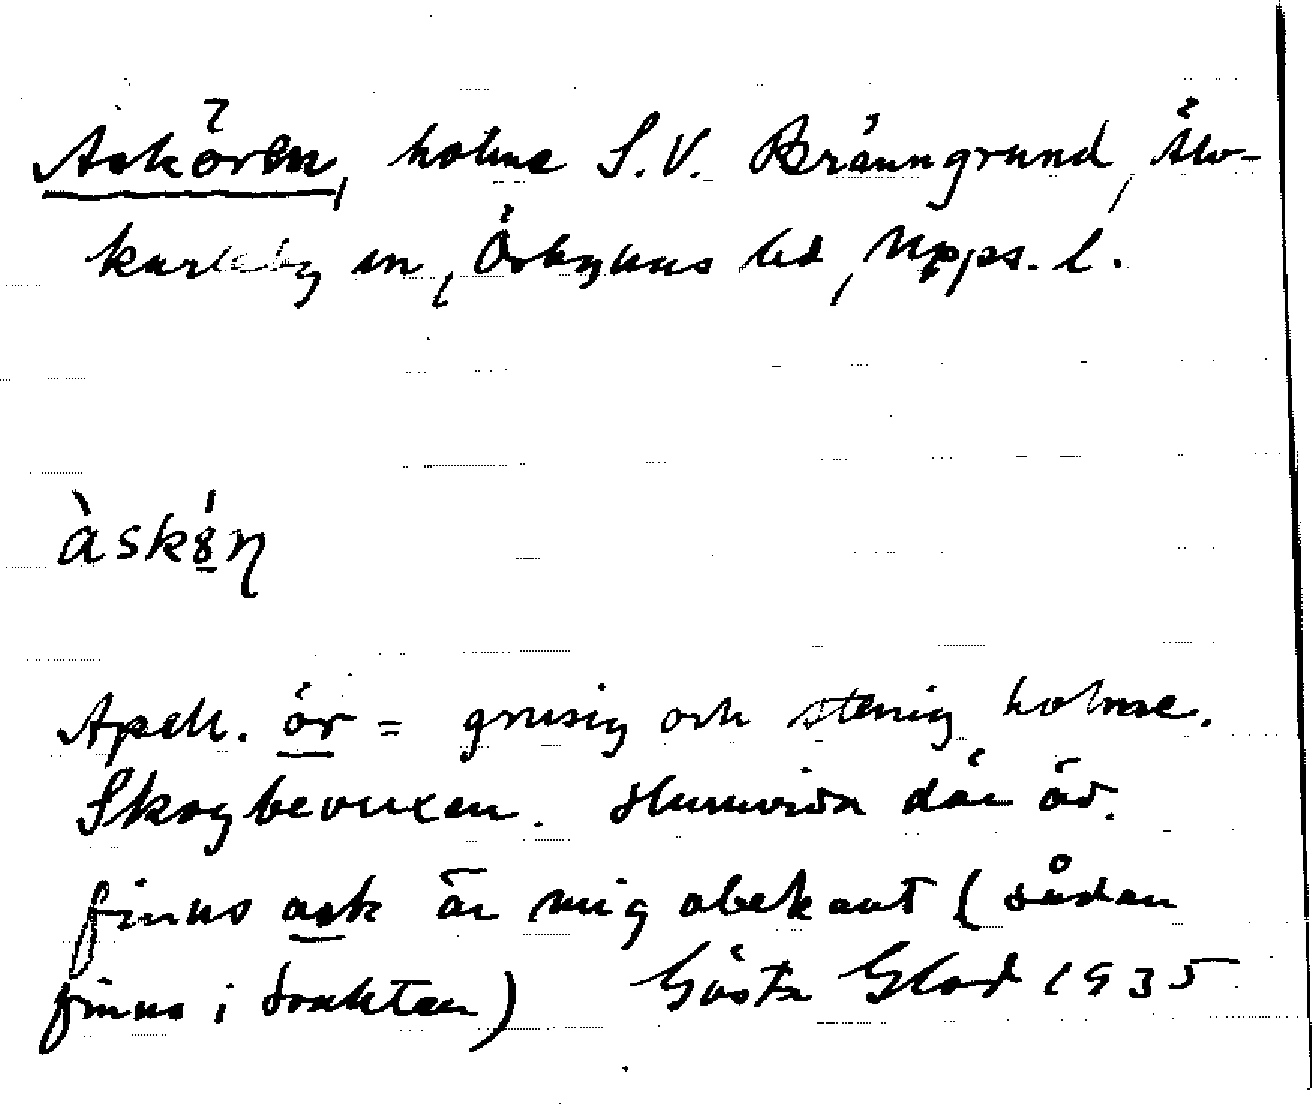 Askören, holme S.V. Bränngrund, Älv-
karleby sn, Örbyhus hd, Upps. l.
àskö́n
Apell. ör = grusig och stenig holme.
Skogbevuxen. Huruvida där äv.
finns ask är mig obekant (sådan
finns i trakten) Gösta Glad 1935